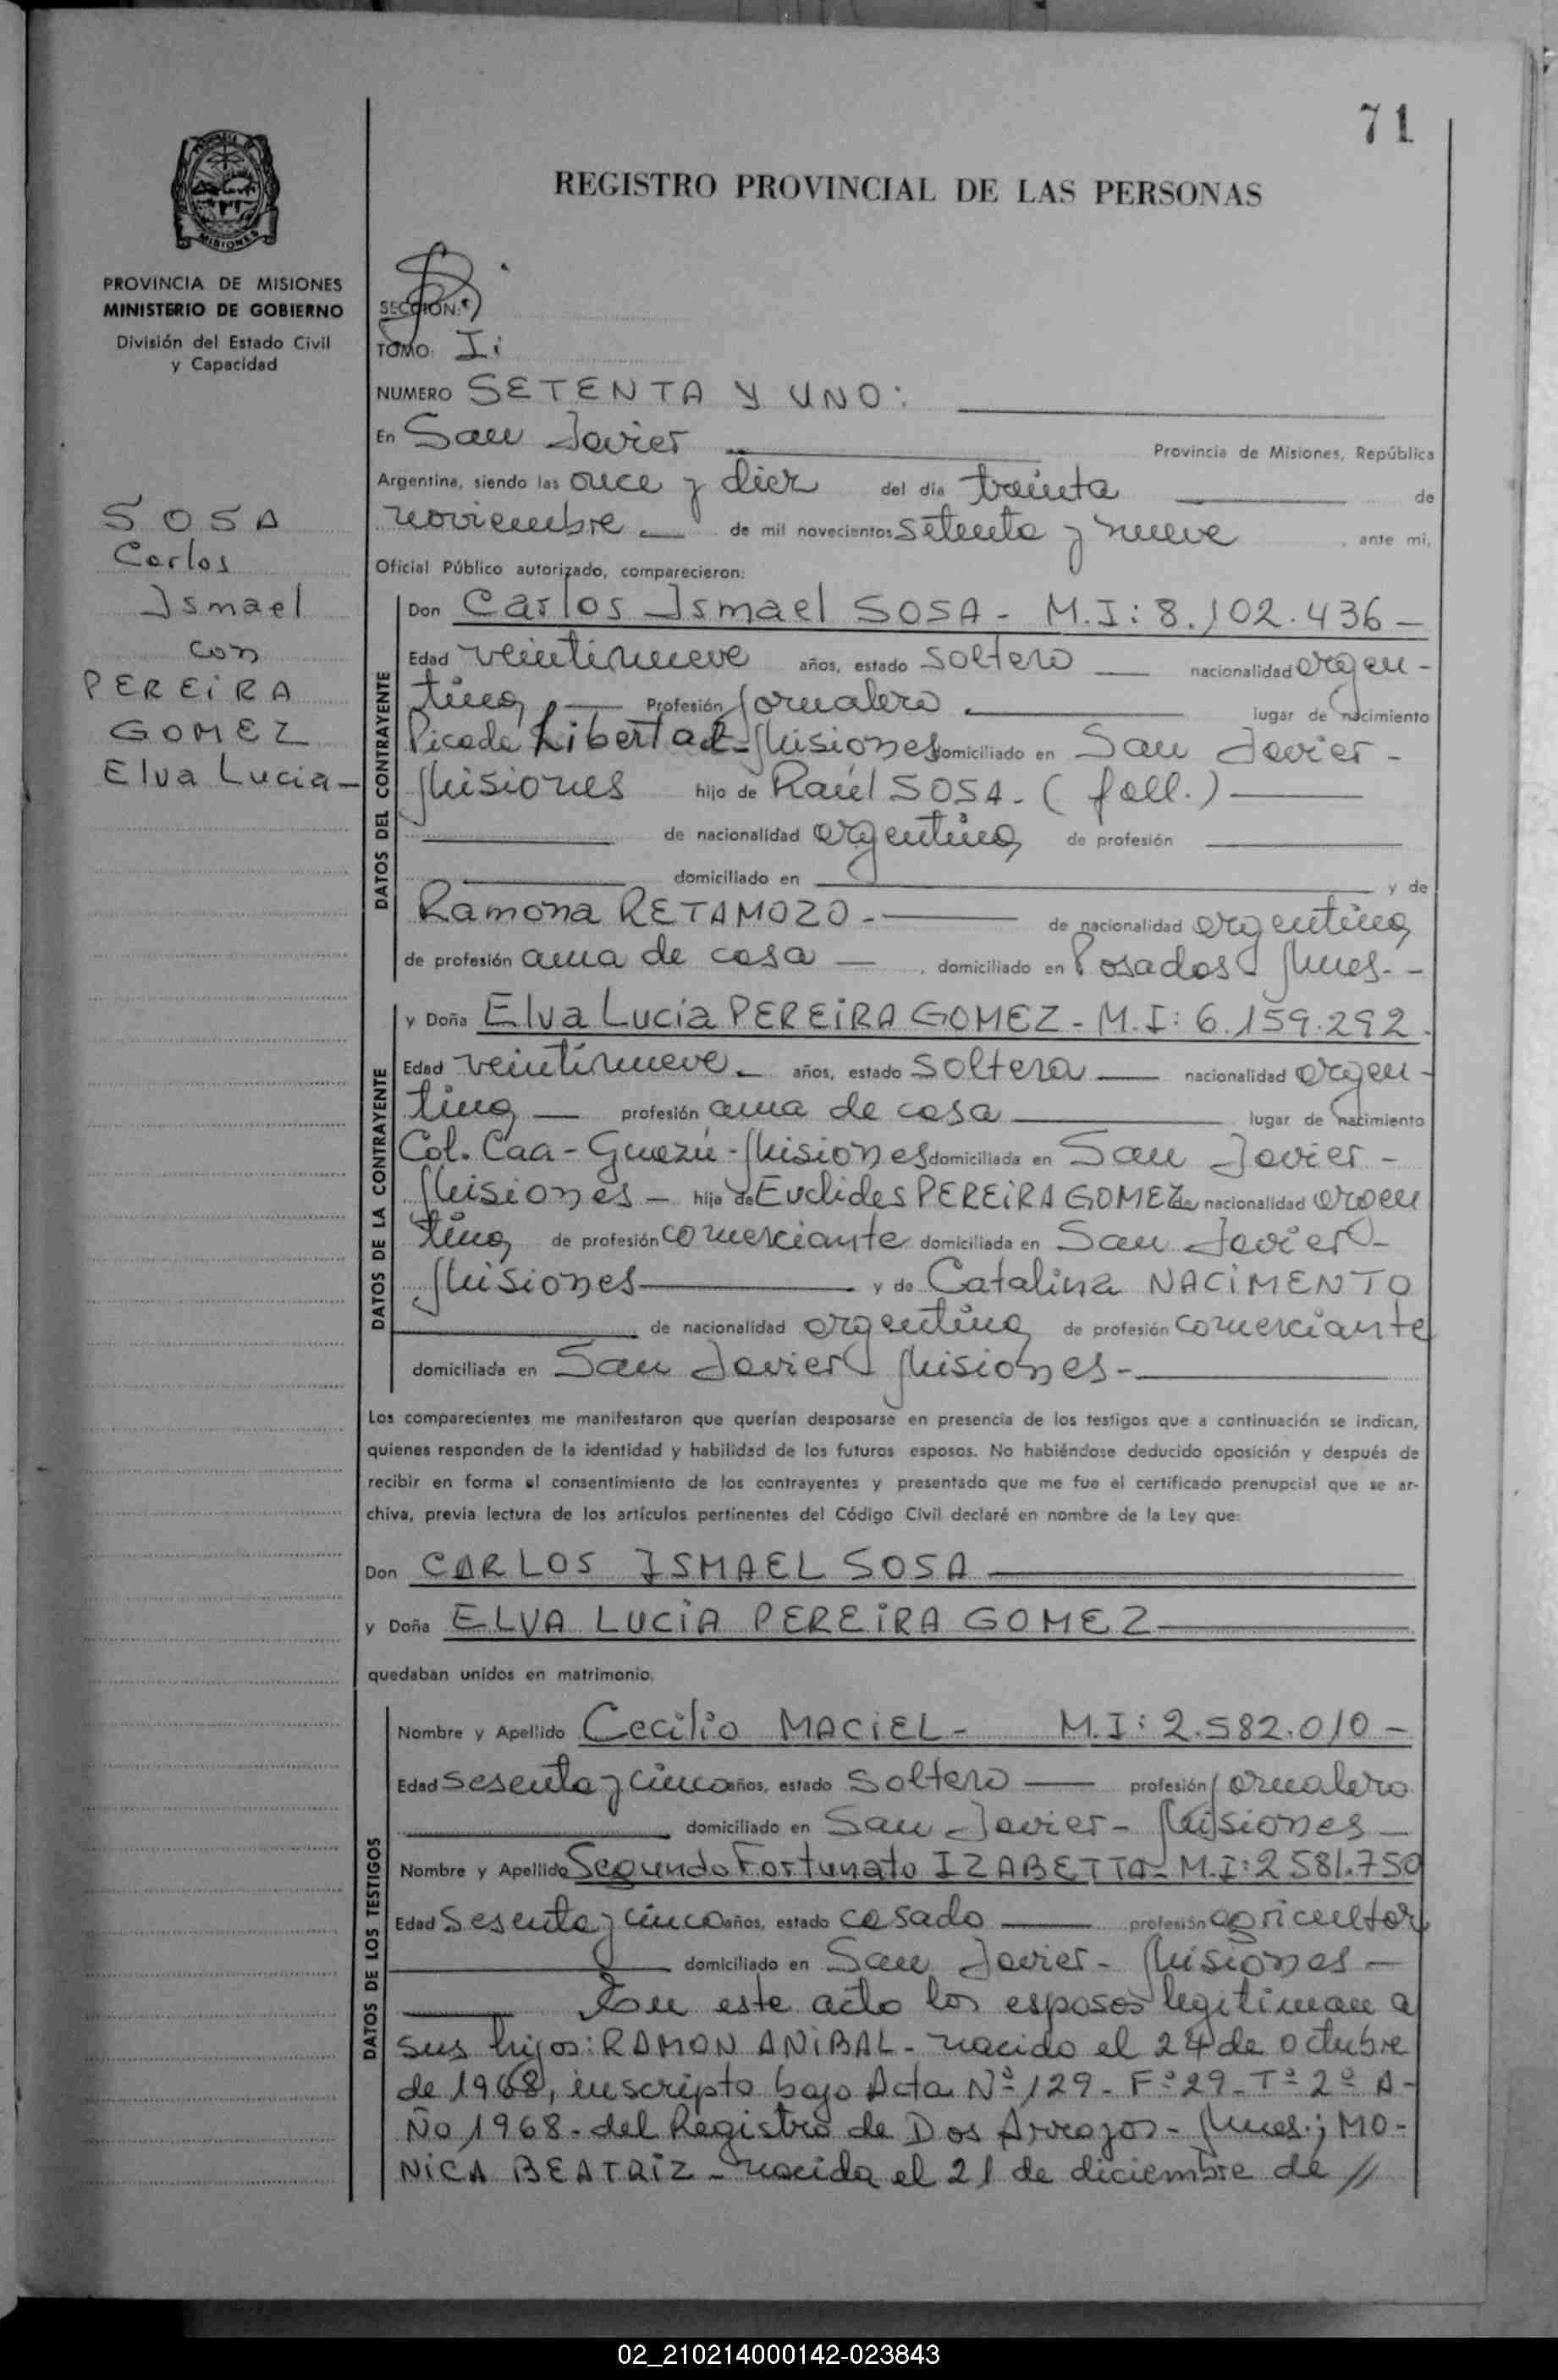 71
REGISTRO PROVINCIAL DE LAS PERSONAS
MISIONES
PROVINCIA DE MISIONES
MINISTERIO DE GOBIERNO
División del Estado Civil
y Capacidad
SECCION:
TOMO: I:
NUMERO SETENTA y UNO:
En San Javier Provincia de Misiones, República
Argentina, siendo las once y diez del día treinta de
noviembre de mil novecientos setenta y nueve, ante mi,
Oficial Público autorizado, comparecieron:
SOSA
Carlos
Ismael
con
PEREiRA
GOMEZ
Elva Lucia-
DATOS DEL CONTRAYENTE
Don Carlos Ismael SOSA - M.I: 8.102.436 -
Edad veintinueve años, estado soltero nacionalidad argen-
tina, Profesión jornalero. lugar de nacimiento
Picada Libertad-Misiones domiciliado en San Javier -
Misiones hijo de Raúl SOSA - (fall.)
de nacionalidad argentina, de profesión
domiciliado en y de
Ramona RETAMOZO - de nacionalidad argentina,
de profesión ama de casa, domiciliado en Posadas Mnes. -
DATOS DE LA CONTRAYENTE
y Doña Elva Lucia PEREiRA GOMEZ - M.I: 6.159.292.
Edad veintinueve - años, estado soltera nacionalidad argen-
tina, profesión ama de casa lugar de nacimiento
Col. Caa-Guazú-Misiones domiciliada en San Javier -
Misiones - hija de Euclides PEREiRA GOMEZ de nacionalidad argen
tina, de profesión comerciante domiciliada en San Javier -
Misiones y de Catalina NACiMENTO
de nacionalidad argentina, de profesión comerciante
domiciliada en San Javier Misiones -
Los comparecientes me manifestaron que querían desposarse en presencia de los testigos que a continuación se indican,
quienes responden de la identidad y habilidad de los futuros esposos. No habiéndose deducido oposición y después de
recibir en forma el consentimiento de los contrayentes y presentado que me fue el certificado prenupcial que se ar-
chiva, previa lectura de los artículos pertinentes del Código Civil declaré en nombre de la Ley que:
Don CARLOS ISMAEL SOSA
y Doña ELVA LUCiA PEREiRA GOMEZ
quedaban unidos en matrimonio.
DATOS DE LOS TESTIGOS
Nombre y Apellido Cecilio MACiEL - M.I: 2.582.010 -
Edad sesenta y cinco años, estado soltero profesión jornalero
domiciliado en San Javier - Misiones -
Nombre y Apellido Segundo Fortunato IZABETTA - M.I: 2581.750
Edad sesenta y cinco años, estado casado profesión agricultor
domiciliado en San Javier - Misiones -
En este acto los esposos legitiman a
sus hijos: RAMON ANiBAL - nacido el 24 de octubre
de 1968, inscripto bajo Acta Nº 129 - Fº 29 - Tº 2º A-
Ño 1968 - del Registro de Dos Arroyos - Mnes.; MO-
NiCA BEATRiZ - nacida el 21 de diciembre de //
02_210214000142-023843